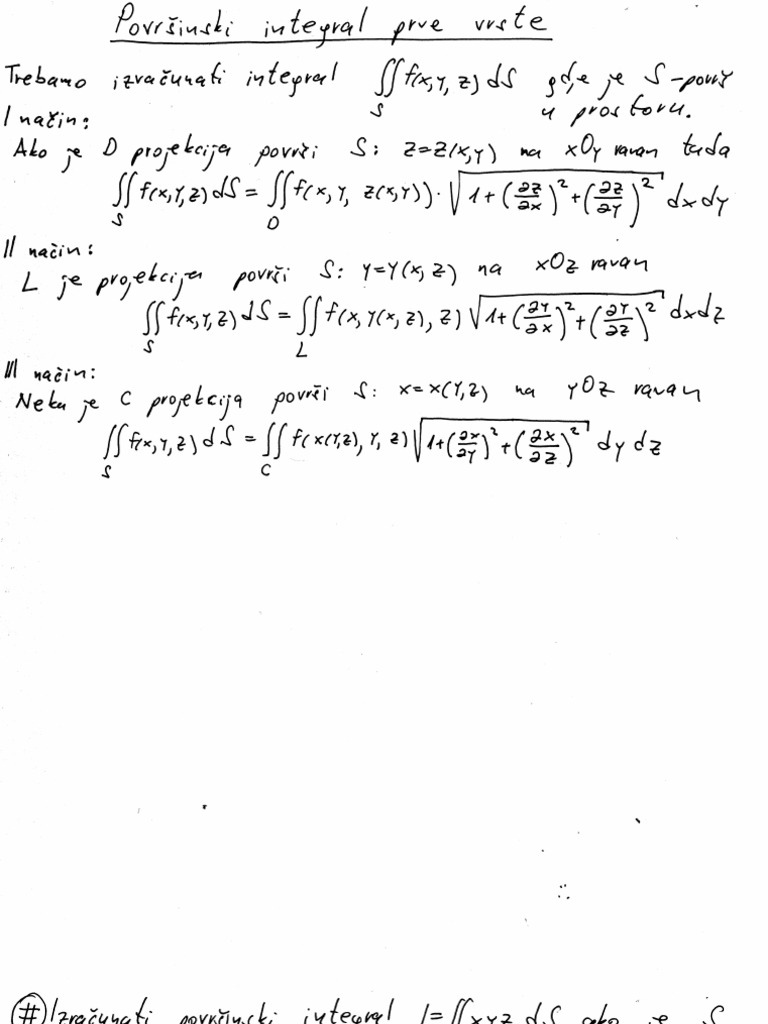 Površinski integral prve vrste
Trebamo izračunati integral ∬_S f(x,y,z) dS gdje je S-površ
u prostoru.
I način:
Ako je D projekcija površi S: z=z(x,y) na xOy ravan tada
∬_S f(x,y,z) dS = ∬_D f(x,y, z(x,y)) · √(1+(∂z/∂x)²+(∂z/∂y)²) dxdy
II način:
L je projekcija površi S: y=y(x,z) na xOz ravan
∬_S f(x,y,z) dS = ∬_L f(x,y(x,z),z) √(1+(∂y/∂x)²+(∂y/∂z)²) dxdz
III način:
Neka je C projekcija površi S: x=x(y,z) na yOz ravan
∬_S f(x,y,z) dS = ∬_C f(x(y,z),y,z) √(1+(∂x/∂y)²+(∂x/∂z)²) dy dz
(#) Izračunati površinski integral I=∬xyz dS ako je S